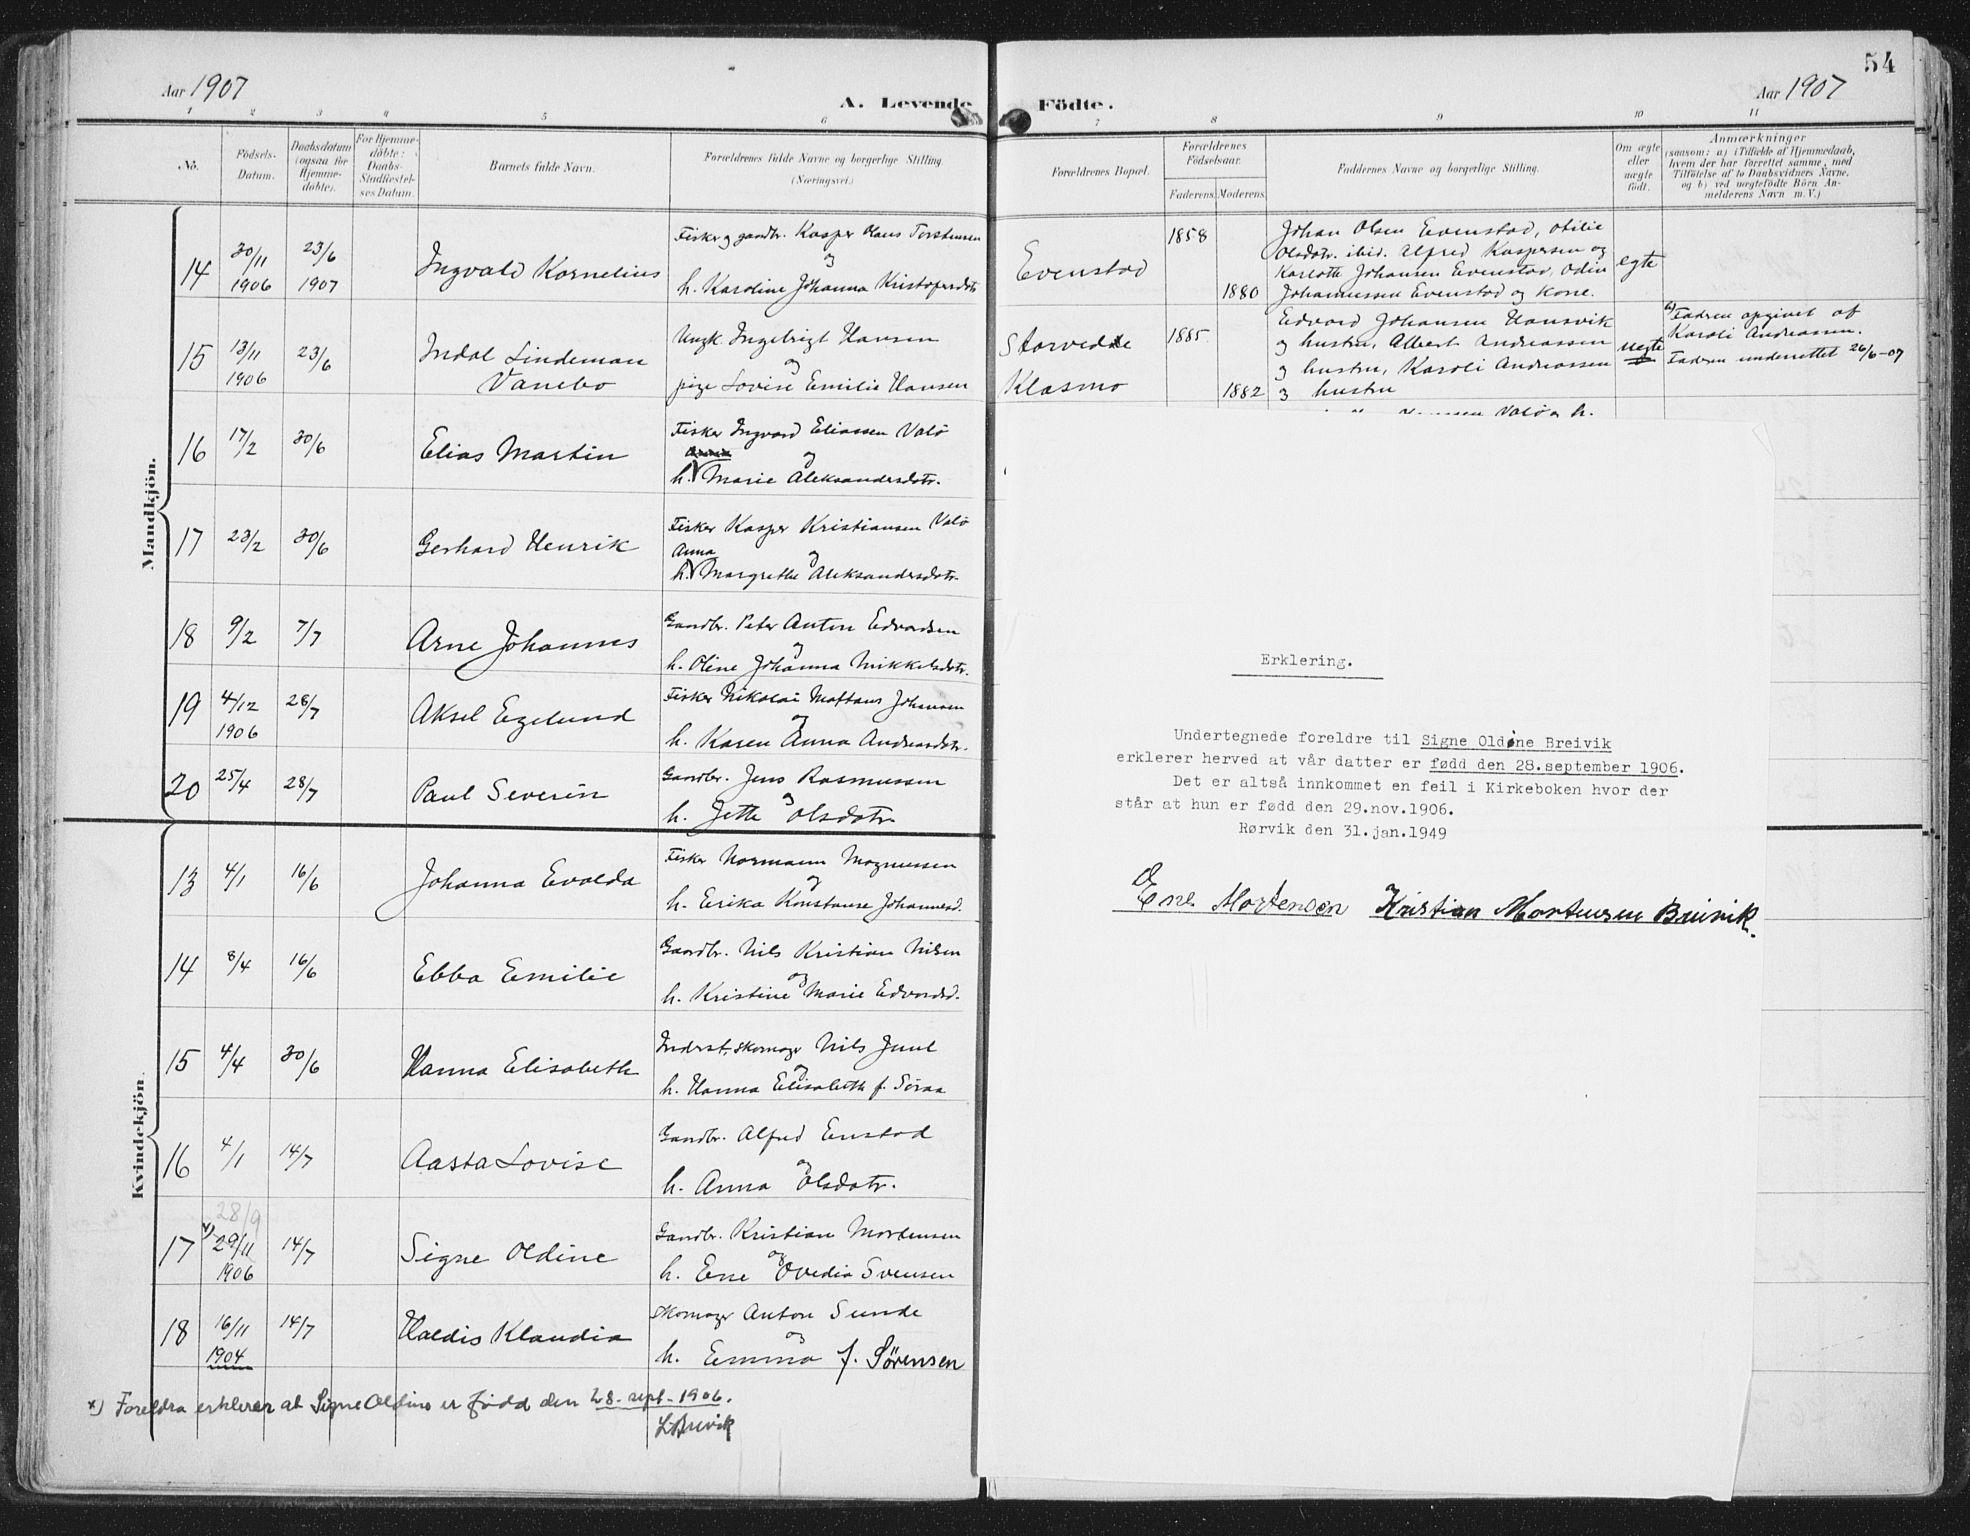 Aar 1907
A. Levende Födte.
Aar 1907
54
1 2 3 4 5 6 7 8 9 10 11
No.
Födsels-
Datum.
Daabsdatum
(ogsaa for
Hjemme-
døbte).
For Hjemme-
døbte:
Daabs-
Stadfæstel-
ses Datum.
Barnets fulde Navn.
Forældrenes fulde Navne og borgerlige Stilling.
(Næringsvei.)
Forældrenes Bopæl.
Forældrenes
Födselsaar.
Faderens. Moderens.
Faddernes Navne og borgerlige Stilling.
Om ægte
eller
uægte
født.
Anmærkninger
(saasom: a) i Tilfælde af Hjemmedaab,
hvem der har forrettet samme, med
Tilföielse af to Daabsvidners Navne,
og b) ved uægtefödte Börn An-
melderens Navn m. V.)
Mandkjön.
14 30/11 1906 23/6 1907 Ingvald Kornelius
Fisker g gaardbr. Kasper Olaus Torstensen
og
h. Karoline Johanna Kristofersdtr
Evenstad
1858
1880
Johan Olsen Evenstad, Otilie
Olsdatr. ibid. Alfred Kaspersen og
Karlotte Johansen Evenstad, Odin
Johannessen Evenstad og Kone.
egte
15 13/11 1906 23/6 Indal Lindeman
Vanebo
Ungk. Ingebrigt Hansen
og
pige Lovise Emilie Hansen
Storvedde
Klasmo
1885
1882
Edvard Johansen Hansvik
og hustru, Albert Andreassen
og hustru, Karoli Andreassen
og hustru
uegte
b) Faderen opgivet af
Karoli Andreassen.
Faderen underrettet 26/6-07
16 17/2 30/6 Elias Martin
Fisker Ingvard Eliassen Valø
og
h. Marie Aleksandersdatr.
Valø h.
17 23/2 30/6 Gerhard Henrik
Fisker Kasper Kristiansen Valø
Anna og
h. Margrethe Aleksandersdatr.
18 9/2 7/7 Arne Johannes
Gaardbr. Peter Anton Edvardsen
og
h. Oline Johanna Mikkelsdatr.
19 4/12 1906 28/7 Aksel Egelund
Fisker Nikolai Moftans Johansen
og
h. Karen Anna Andreasdatr.
20 25/4 28/7 Paul Severin
Gaardbr. Jens Rasmussen
og
h. Jette Olsdatr.
Kvindekjön.
13 4/1 16/6 Johanna Evalda
Fisker Normann Magnussen
og
h. Erika Konstanse Johannesd.
14 8/4 16/6 Ebba Emilie
Gaardbr. Nils Kristian Nilsen
og
h. Kristine Marie Edvardsd.
15 4/4 30/6 Hanna Elisabeth
Inderst, skomager Nils Juul
og
h. Hanna Elisabeth f. Søraa
16 4/1 14/7 Aasta Lovise
Gaardbr. Alfred Enstad
og
h. Anna Olsdatr.
28/9
17 x) 29/11 1906 14/7 Signe Oldine
Gaardbr. Kristian Mortensen
og
h. Ene Ovedia Svensen
18 16/11 1904 14/7 Haldis Klaudia
Skomager Anton Sunde
og
h. Emma f. Sørensen
x) Foreldra erklerer at Signe Oldine er fødd den 28. sept. 1906.
LBreivik
Erklering.
Undertegnede foreldre til Signe Oldine Breivik
erklerer herved at vår datter er fødd den 28.september 1906.
Det er altså innkommet en feil i Kirkeboken hvor der
står at hun er fødd den 29.nov.1906.
Rørvik den 31.jan.1949
O
Ene Mortensen Kristian Mortensen Breivik.